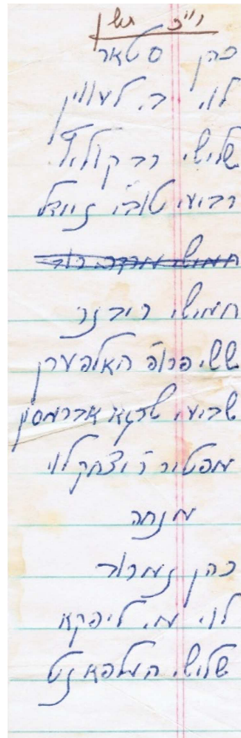 יו"כ תשן
כהן סטאר
לוי ב. לעווין
שלישי רב קוליץ
רביעי טובי' זיידל
חמישי
חמישי ריבנר
ששי פרופ' האלפערן
שביעי שרגא אברמסון
מפטיר ר' יצחק לוי
מנחה
כהן נמרוד
לוי מ. ליפקא
שלישי העלפאנט